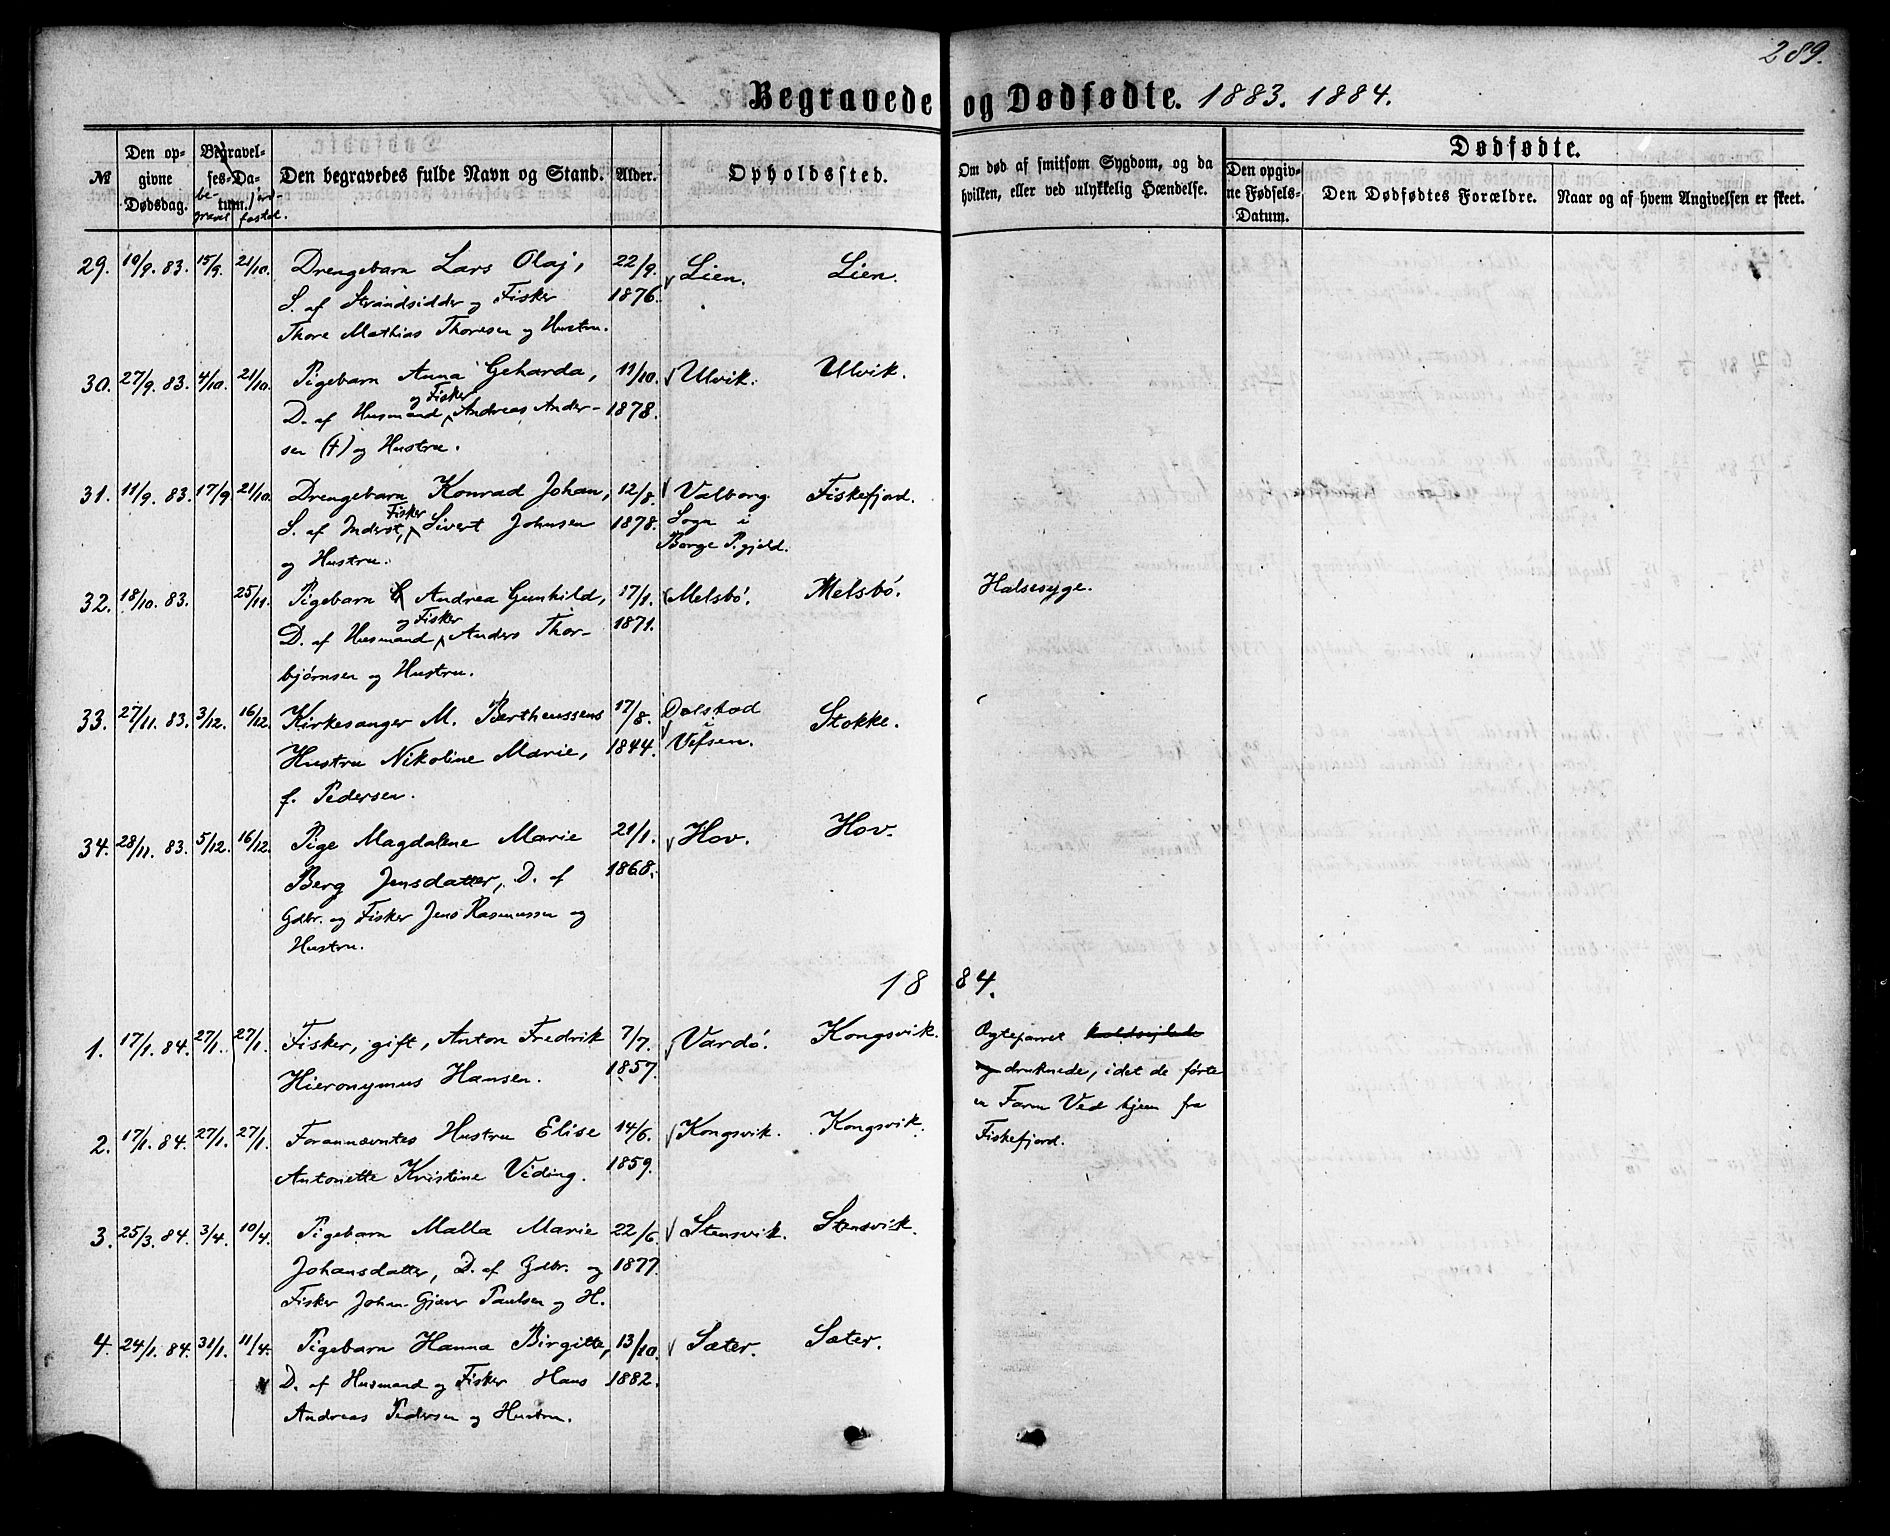 289.
Begravede og Dødfødte. 1883. 1884.
№
Den opgivne Dødsdag.
Begravelses-Datum.
begravet / jordfæstet.
Den begravedes fulde Navn og Stand.
Alder.
Opholdssted.
Om død af smitsom Sygdom, og da hvilken, eller ved ulykkelig Hændelse.
Dødfødte.
Den opgivne Fødsels-Datum.
Den Dødfødtes Forældre.
Naar og af hvem Angivelsen er skeet.
29. 10/9. 83. 15/9. 21/10. Drengebarn Lars Olaj, 22/9. Lien. Lien.
S. af Strandsidder og Fisker 1876.
Thore Mathias Thoresen og Hustru.
30. 27/9. 83. 4/10. 21/10. Pigebarn Anna Geharda, 11/10. Ulvik. Ulvik.
D. af Husmand og Fisker Andreas Ander- 1878.
sen (†) og Hustru.
31. 11/9. 83. 17/9 21/10. Drengebarn Konrad Johan, 12/8. Valborg Fiskefjord.
S. af Inderst, Fisker Sivert Johnsen 1878. Sogn i
og Hustru. Borge P.gjeld.
32. 18/10. 83. 25/11. Pigebarn Andrea Gunhild, 17/1. Melsbö. Melsbö. Halsesyge.
D. af Husmand og Fisker Anders Thor- 1871.
bjørnsen og Hustru.
33. 27/11. 83. 3/12. 16/12. Kirkesanger M. Bertheussens 17/8. Dolstad Stokke.
Hustru Nikoline Marie, 1844. i Vefsen.
f. Pedersen.
34. 28/11. 83. 5/12. 16/12. Pige Magdalene Marie 21/1. Hov. Hov.
Berg Jensdatter, D. af 1868.
Gdbr. og Fisker Jens Rasmussen og
Hustru.
1884.
1. 17/1. 84. 27/1. 27/1. Fisker, gift, Anton Fredrik 7/7. Vardö. Kongsvik. Ægteparret koldseilede
Hieronymus Hansen. 1857. og druknede, idet de førte
en Farm Ved hjem fra
2. 17/1. 84. 27/1. 27/1. Forannævntes Hustru Elise 14/6. Kongsvik. Kongsvik. Fiskefjord.
Antonette Kristine Viding. 1859.
3. 25/3. 84. 3/4. 10/4. Pigebarn Malla Marie 22/6. Stensvik. Stensvik.
Johansdatter, D. af Gdbr. og 1877.
Fisker Johan Gjæver Paulsen og H.
4. 24/1. 84. 31/1. 11/4. Pigebarn Hanna Birgitte, 13/10. Sæter. Sæter.
D. af Husmand og Fisker Hans 1882.
Andreas Pedersen og Hustru.